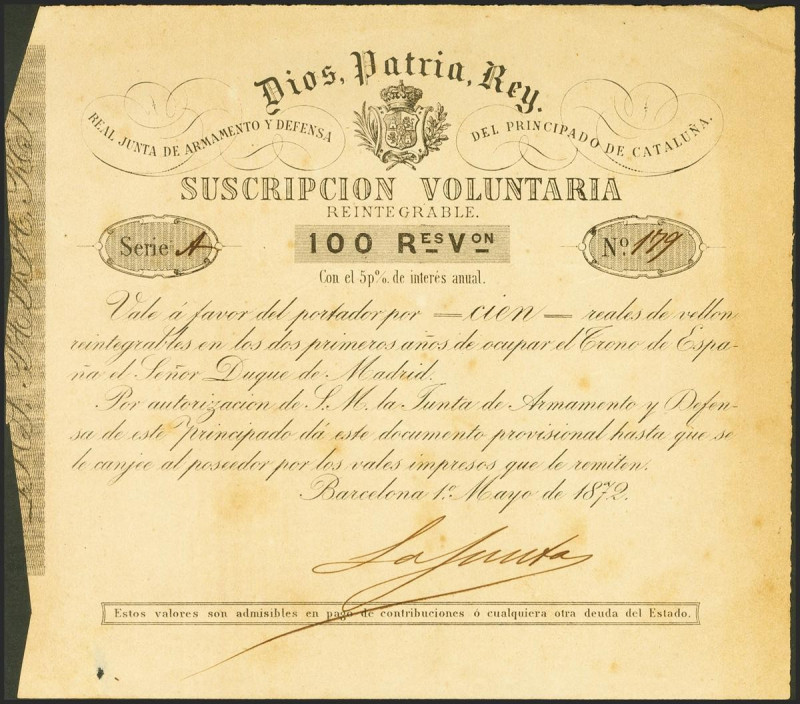 Dios, Patria, Rey.
REAL JUNTA DE ARMAMENTO Y DEFENSA DEL PRINCIPADO DE CATALUÑA.
SUSCRIPCION VOLUNTARIA
REINTEGRABLE.
Serie A
100 RES VON
Nº 179
Con el 5 p% de interés anual.
Vale á favor del portador por = cien = reales de vellon
reintegrables en los dos primeros años de ocupar el Trono de Espa-
ña el Señor Duque de Madrid.
Por autorizacion de S. M. la Junta de Armamento y Defen-
sa de este Principado dá este documento provisional hasta que se
le canjee al poseedor por los vales impresos que le remiten.
Barcelona 1º Mayo de 1872.
La Junta
Estos valores son admisibles en pago de contribuciones ó cualquiera otra deuda del Estado.